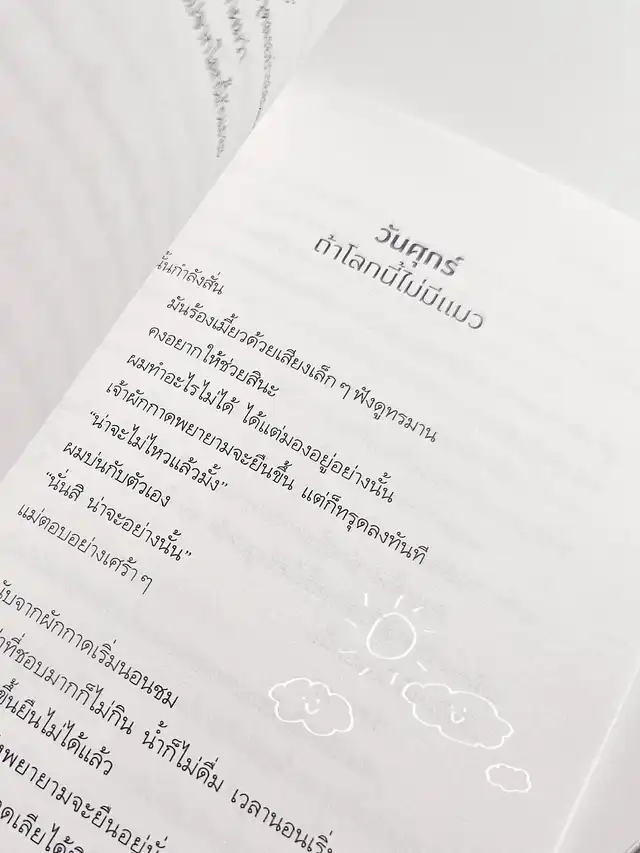 วันศุกร์
ถ้าโลกนี้ไม่มีแมว
นั้นกำลังสั่น
มันร้องเมี้ยวด้วยเสียงเล็ก ๆ ฟังดูทรมาน
คงอยากให้ช่วยสินะ
ผมทำอะไรไม่ได้ ได้แต่มองอยู่อย่างนั้น
เจ้าผักกาดพยายามจะยืนขึ้น แต่ก็ทรุดลงทันที
“น่าจะไม่ไหวแล้วมั้ง”
ผมบ่นกับตัวเอง
“นั่นสิ น่าจะอย่างนั้น”
แม่ตอบอย่างเศร้า ๆ
จากผักกาดเริ่มนอนซม
ที่ชอบมากก็ไม่กิน น้ำก็ไม่ดื่ม เวลานอนเริ่
ขึ้นยืนไม่ได้แล้ว
พยายามจะยืนอยู่